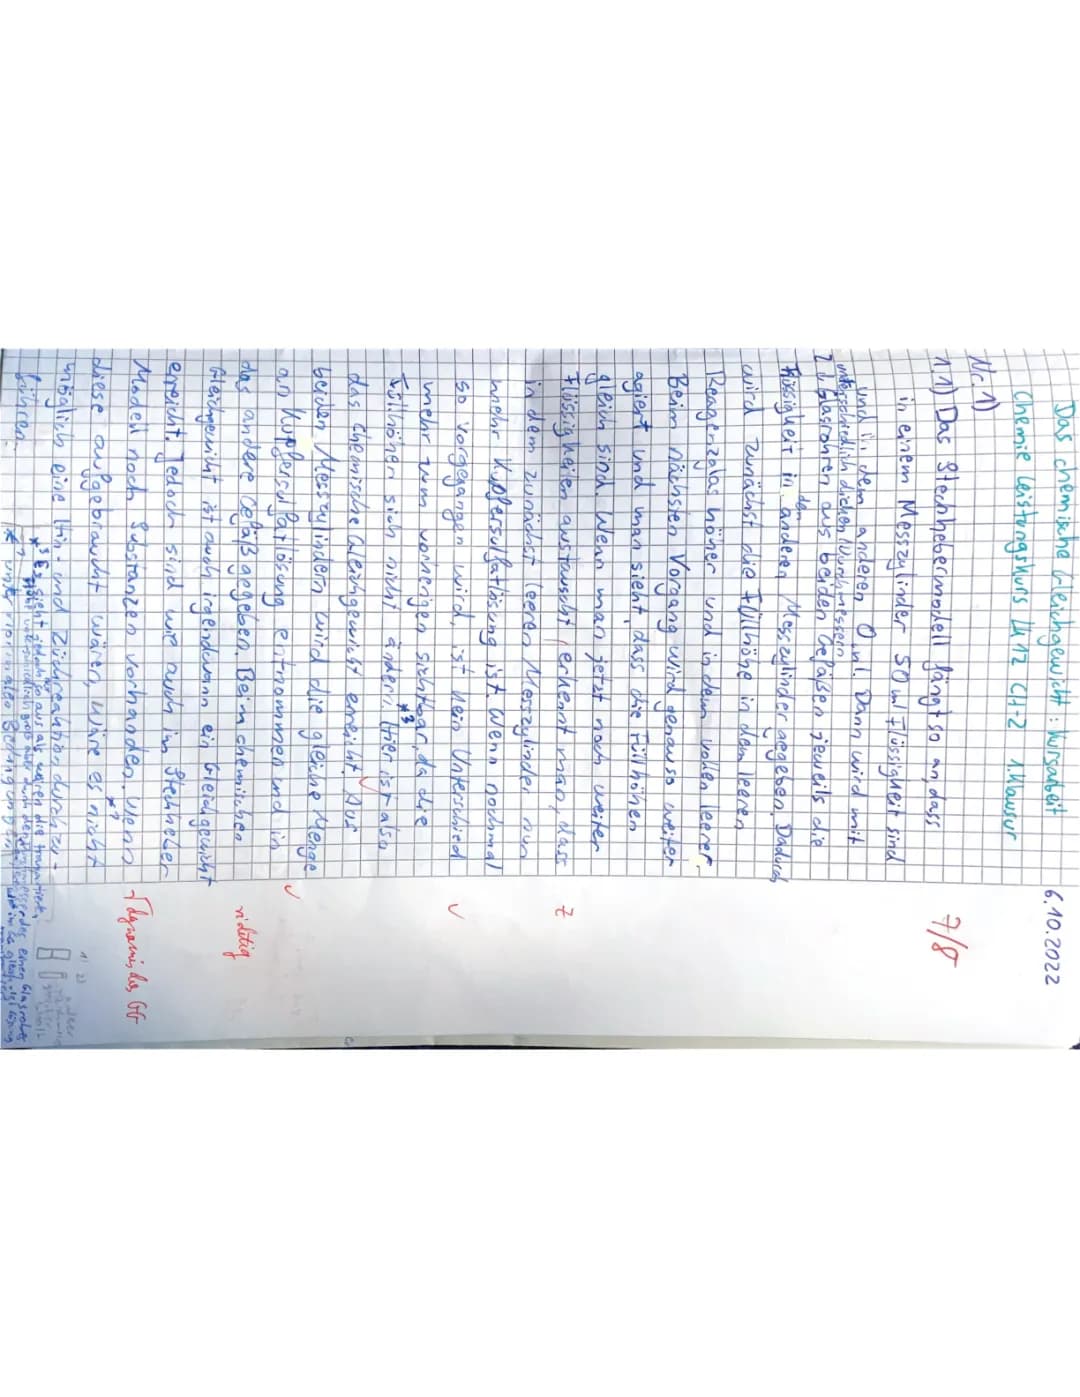 Das chemische Gleichgewicht: Kursarbeit 6.10.2022
Chemie Leistungskurs LK 12 CH-2 1. Klausur
Nr. 1)
7/8
1.1) Das Stechhebermodell fängt so an, dass
in einem Messzylinder 50 ml Flüssigkeit sind
und in dem anderen 0 ml. Dann wird mit
unterschiedlich dicken (Durchmessern
2 Glasrohren aus beiden Gefäßen jeweils die
Flüssigkeit in den anderen Messzylinder gegeben. Dadurch
wird zunächst die Füllhöhe in dem leeren
Reagenzglas höher und in dem vollen leerer.
Beim nächsten Vorgang wird genauso weiter
agiert und man sieht, dass die Füllhöhen
gleich sind. Wenn man jetzt noch weiter
Flüssigkeiten austauscht, erkennt man, dass
in dem zunächst leeren Messzylinder nun
mehr Kupfersulfatlösung ist. Wenn nochmal
so vorgegangen wird, ist kein Unterschied
mehr zum vorherigen sichtbar, da die
Füllhöhen sich nicht ändern. *3 Hier ist also
das chemische Gleichgewicht erreicht. Aus
beiden Messzylindern wird die gleiche Menge
an Kupfersulfatlösung entnommen und in
das andere Gefäß gegeben. Beim chemischen richtig
Gleichgewicht ist auch irgendwann ein Gleichgewicht
erreicht. Jedoch sind wie auch im Stechheber
Modell noch Substanzen vorhanden. Wenn Dynamik des GG
diese aufgebraucht wären, wäre es nicht
möglich eine Hin- und Rückreaktion durchzu-
führen.
*3 Es sieht jedoch so aus als wären die